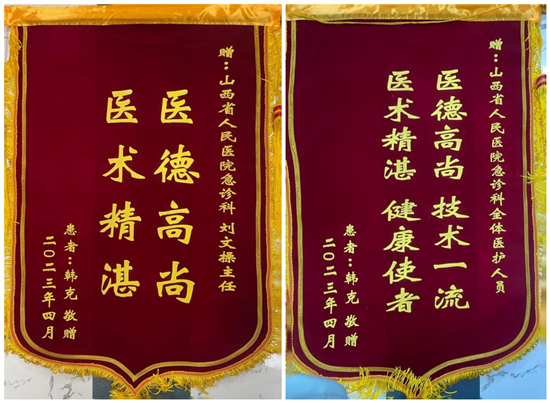 赠：山西省人民医院急诊科 刘文操主任
医德高尚
医术精湛
患者：韩克 敬赠
二〇二三年四月
赠：山西省人民医院急诊科全体医护人员
医德高尚 技术一流
医术精湛 健康使者
患者：韩克 敬赠
二〇二三年四月